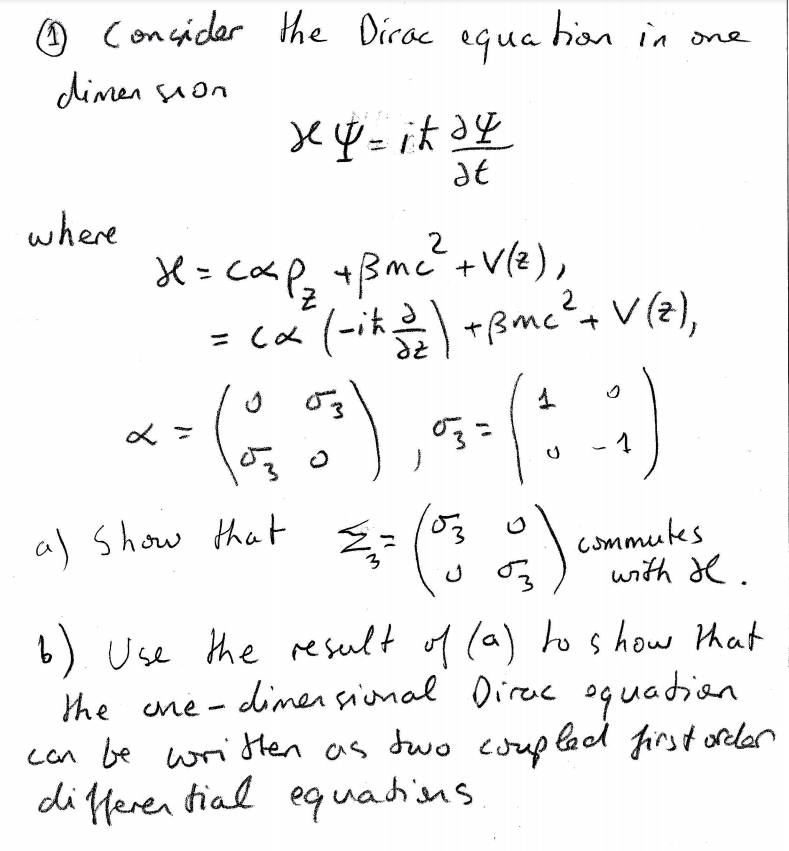 ① Consider the Dirac equation in one
dimension
ℋΨ = iħ ∂Ψ/∂t
where
ℋ = cαp_z + βmc² + V(z),
= cα (-iħ ∂/∂z) + βmc² + V(z),
α = (0 σ₃; σ₃ 0), σ₃ = (1 0; 0 -1)
a) Show that Σ₃ = (σ₃ 0; 0 σ₃) commutes
with ℋ.
b). Use the result of (a) to show that
the one-dimensional Dirac equation
can be written as two coupled first order
differential equations